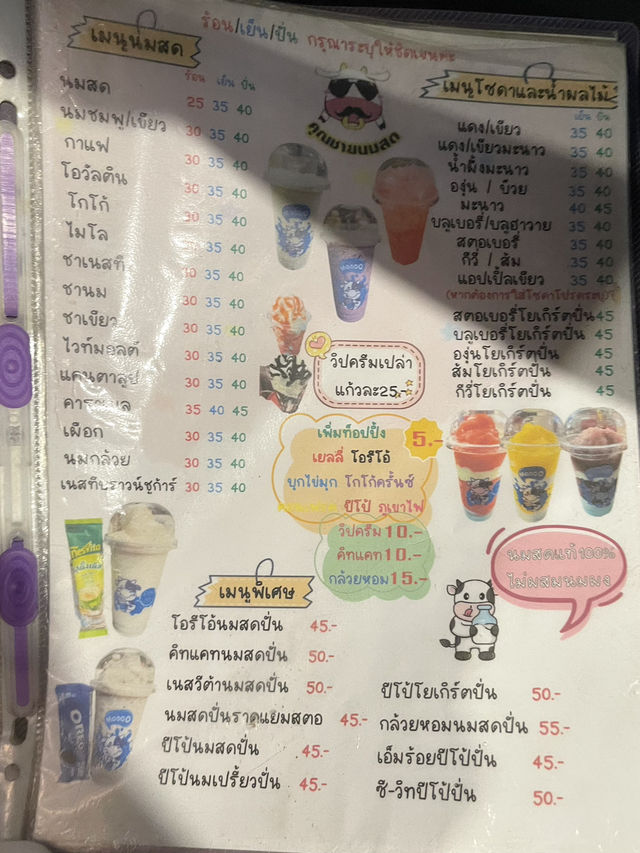 ร้อน/เย็น/ปั่น กรุณาระบุให้ชัดเจนค่ะ
เมนูนมสด
ร้อน เย็น ปั่น
นมสด 25 35 40
นมชมพู/เขียว 30 35 40
กาแฟ 30 35 40
โอวัลติน 30 35 40
โกโก้ 30 35 40
ไมโล 30 35 40
ชาเนสที 30 35 40
ชานม 30 35 40
ชาเขียว 30 35 40
ไวท์มอลต์ 30 35 40
แคนตาลูป 30 35 40
35 40 45
เผือก 30 35 40
นมกล้วย 30 35 40
เนสทีบราวน์ชูก้าร์ 30 35 40
คุณชายนมสด
เมนูโซดาและน้ำผลไม้
เย็น ปั่น
แดง/เขียว 35 40
แดง/เขียวมะนาว 35 40
น้ำผึ้งมะนาว 35 40
องุ่น / บ๊วย 35 40
มะนาว 40 45
บลูเบอรี่/บลูฮาวาย 35 40
สตอเบอรี่ 35 40
กีวี / ส้ม 35 40
แอปเปิ้ลเขียว 35 40
(หากต้องการใส่โซดาโปรดระบุ)
สตอเบอรี่โยเกิร์ตปั่น 45
บลูเบอรี่โยเกิร์ตปั่น 45
องุ่นโยเกิร์ตปั่น 45
ส้มโยเกิร์ตปั่น 45
กีวี่โยเกิร์ตปั่น 45
วิปครีมเปล่า
แก้วละ25.-
เพิ่มท็อปปิ้ง 5.-
เยลลี่ โอรีโอ้
บุกไข่มุก โกโก้ครั้นช์
ปีโป้ ภูเขาไฟ
วิปครีม 10.-
คิทแคท 10.-
กล้วยหอม 15.-
นมสดแท้ 100%
ไม่ผสมนมผง
เมนูพิเศษ
โอรีโอ้นมสดปั่น 45.-
คิทแคทนมสดปั่น 50.-
เนสวีต้านมสดปั่น 50.-
นมสดปั่นราดแยมสตอ 45.-
ปีโป้นมสดปั่น 45.-
ปีโป้นมเปรี้ยวปั่น 45.-
ปีโป้โยเกิร์ตปั่น 50.-
กล้วยหอมนมสดปั่น 55.-
เอ็มร้อยปีโป้ปั่น 45.-
ซี-วิทปีโป้ปั่น 50.-